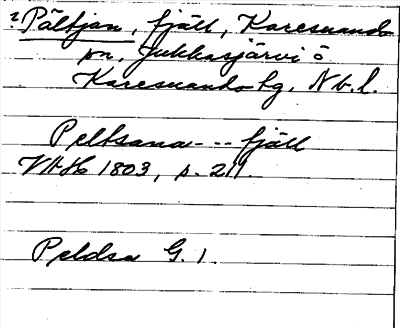 ? Pältjan, fjäll, Karesuando
sn, Jukkasjärvi o
Karesuando lg, Nb. l.
Peltsana --- fjäll
VAH 1803, p. 211
Peldsa G. 1.